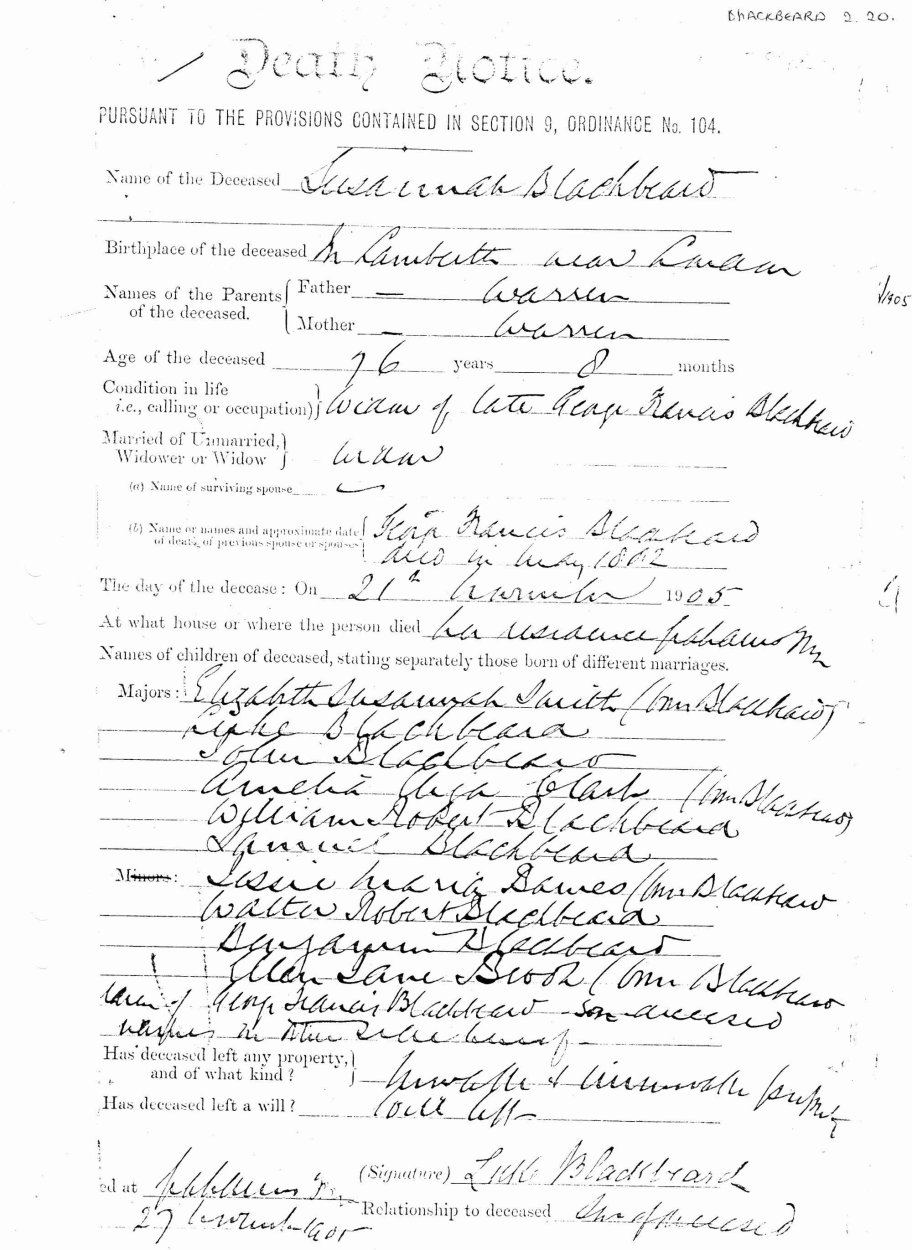 BLACKBEARD 2.20.
Death Notice.
PURSUANT TO THE PROVISIONS CONTAINED IN SECTION 9, ORDINANCE No. 104.
Name of the Deceased Susannah Blackbeard
Birthplace of the deceased In Lambeth near London
1905
Names of the Parents of the deceased. Father — Warren
Mother — Warren
Age of the deceased 76 years 8 months
Condition in life
i.e., calling or occupation) Widow of late George Francis Blackbeard
Married of Unmarried,
Widower or Widow Widow
(a) Name of surviving spouse —
(b) Name or names and approximate date George Francis Blackbeard
of death of previous spouse or spouses died in May
The day of the decease: On 21st November 1905
At what house or where the person died her residence
Names of children of deceased, stating separately those born of different marriages.
Majors: Elizabeth Susannah Smith (born Blackbeard)
Luke Blackbeard
John Blackbeard
Amelia Eliza Clark (born Blackbeard)
William Robert Blackbeard
Samuel Blackbeard
Minors: Jessie Maria Barnes (born Blackbeard
Walter Robert Blackbeard
Benjamin Blackbeard
Ellen Jane Brook (born Blackbeard
George Francis Blackbeard son deceased
Has deceased left any property,
and of what kind? Movable & immovable property
Has deceased left a will? Will left
ed at (Signature) Luke Blackbeard
27 November 1905 Relationship to deceased Son of deceased